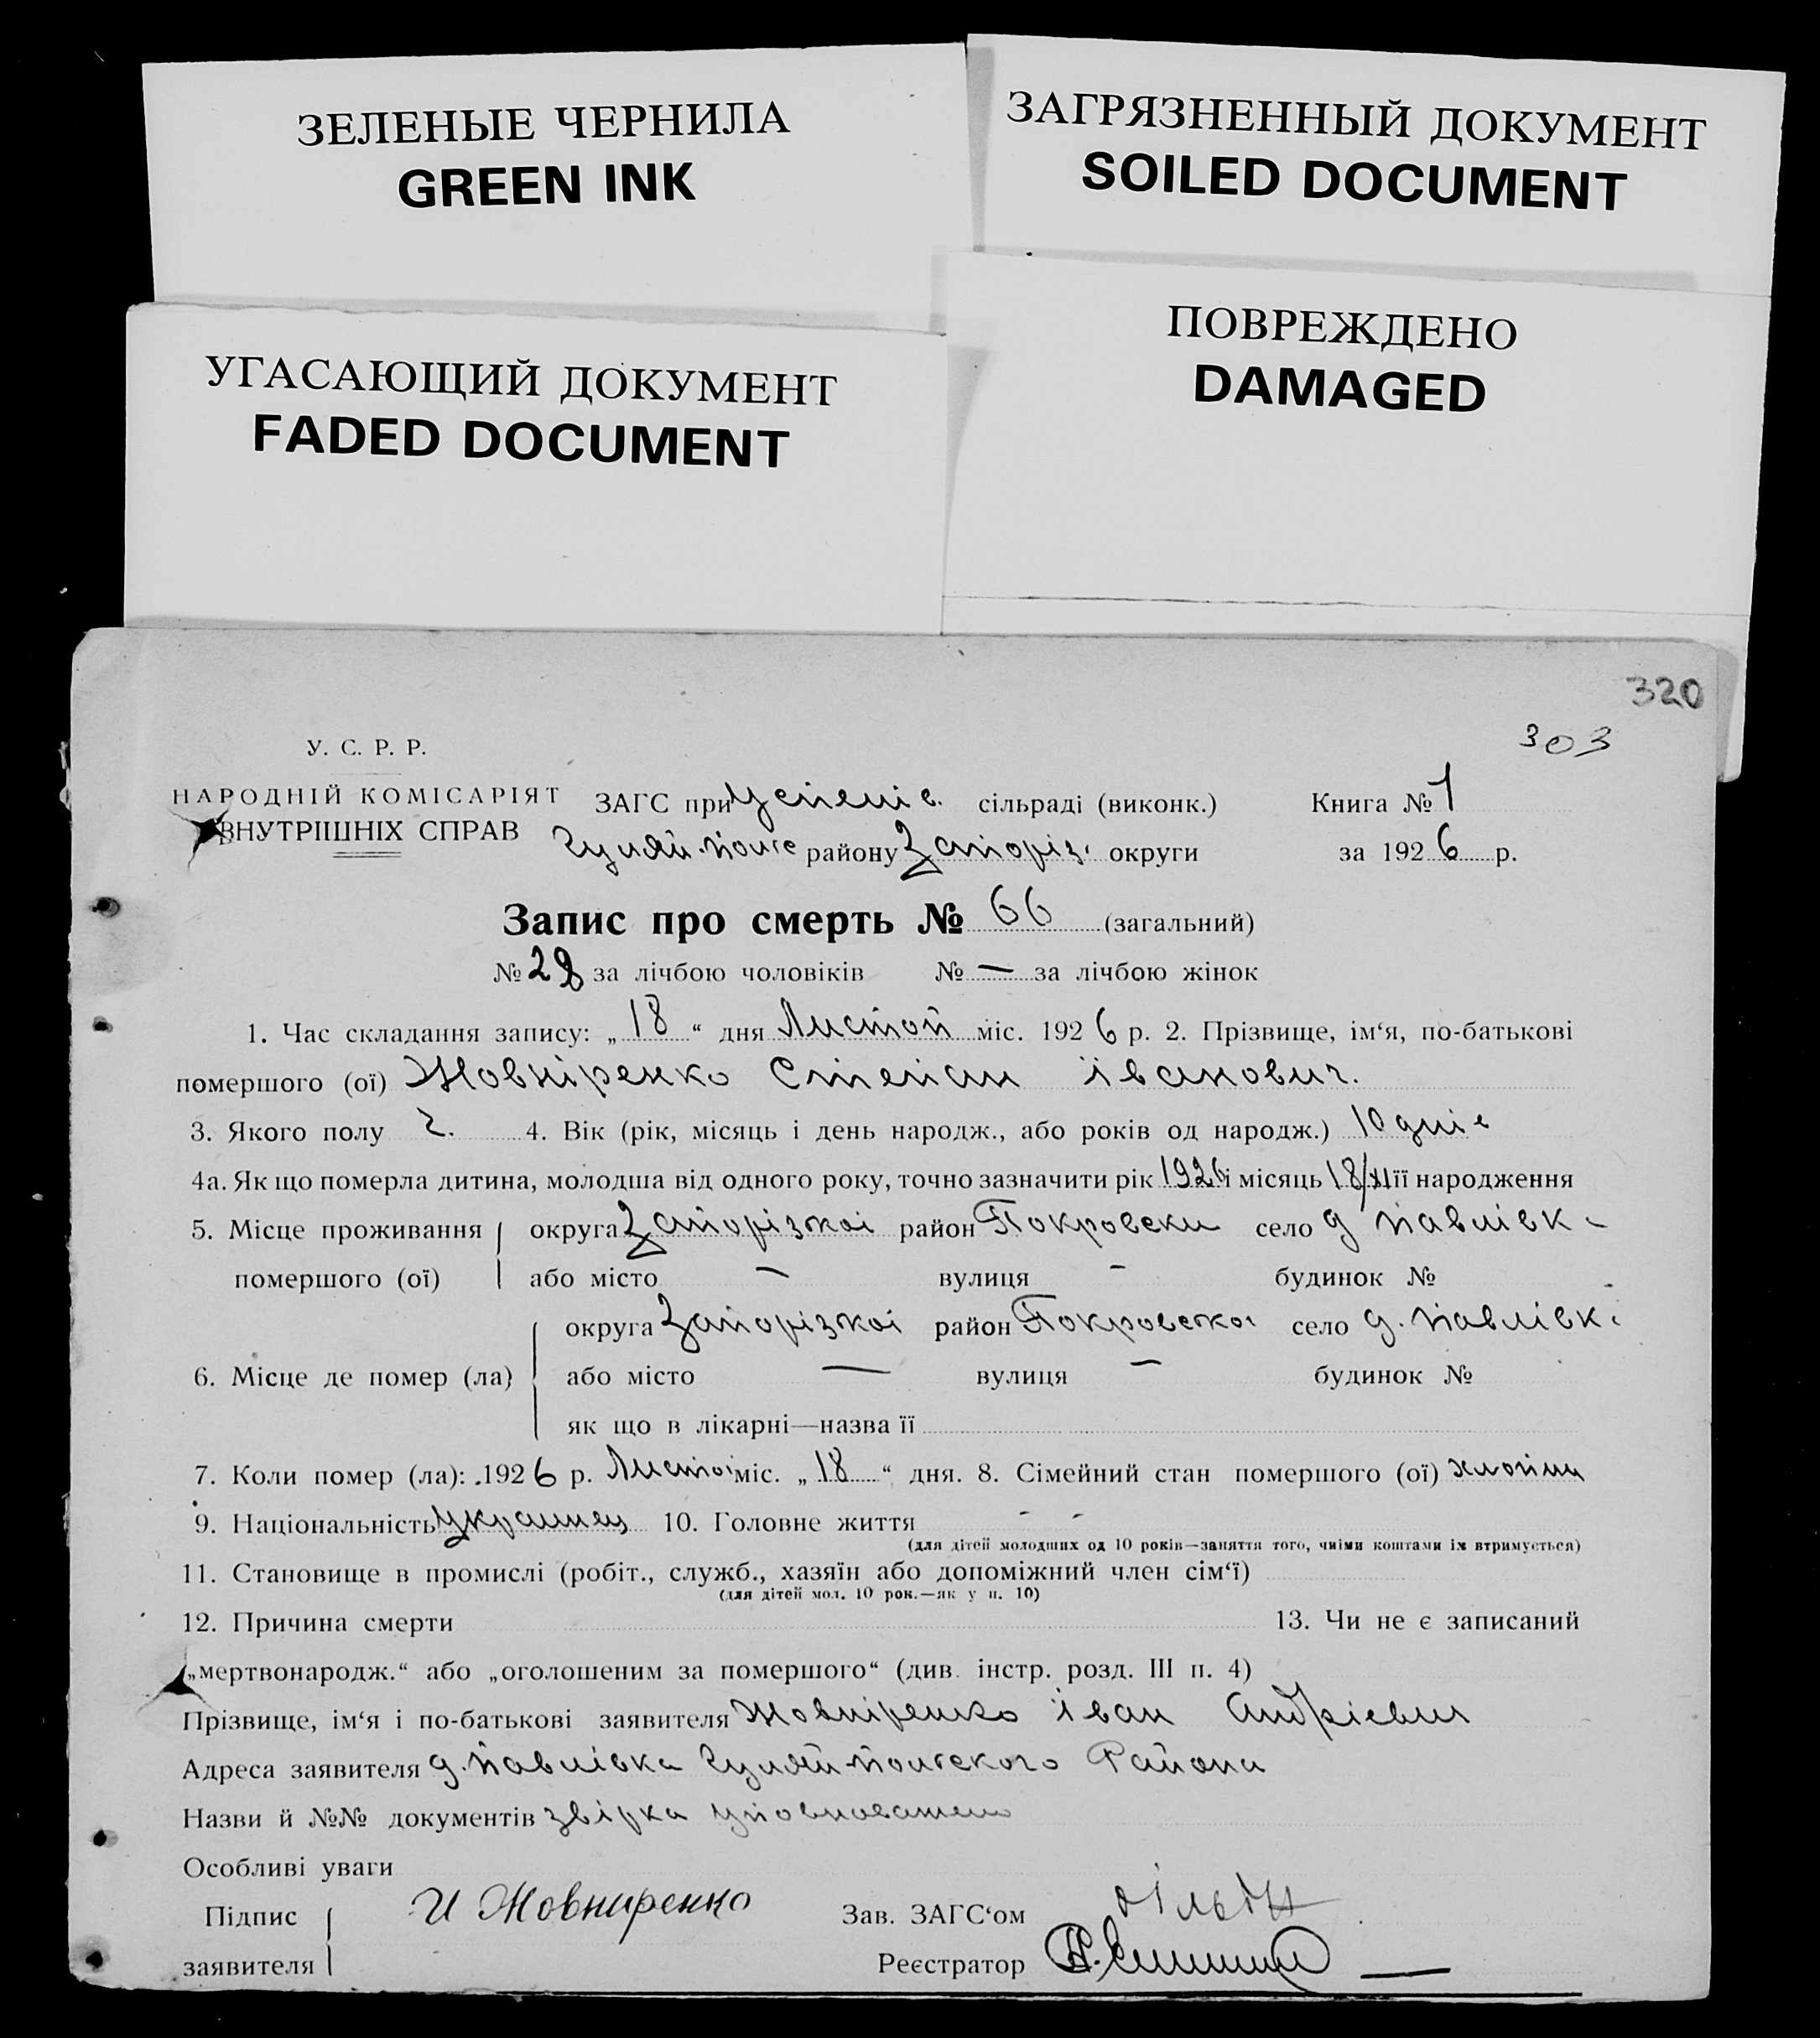 ЗЕЛЕНЫЕ ЧЕРНИЛА
GREEN INK
ЗАГРЯЗНЕННЫЙ ДОКУМЕНТ
SOILED DOCUMENT
УГАСАЮЩИЙ ДОКУМЕНТ
FADED DOCUMENT
ПОВРЕЖДЕНО
DAMAGED
320
303
У. С. Р. Р.
НАРОДНІЙ КОМІСАРІЯТ
ВНУТРІШНІХ СПРАВ
ЗАГС при Успенів. сільраді (виконк.) Книга № 1
Гуляй-Поле району Запоріз. округи за 1926 р.
Запис про смерть № 66 (загальний)
№ 28 за лічбою чоловіків № — за лічбою жінок
1. Час складання запису: „18“ дня Листоп міс. 1926 р. 2. Прізвище, ім‘я, по-батькові
помершого (ої) Жовніренко Степан Іванович.
3. Якого полу ч. 4. Вік (рік, місяць і день народж., або років од народж.) 10 днів
4а. Як що померла дитина, молодша від одного року, точно зазначити рік 1926 і місяць 18/XI її народження
5. Місце проживання округа Запорізкої район Покровски село д Павлівк
помершого (ої) або місто — вулиця - будинок №
округа Запорізкої район Покровско село д. Павлівк
6. Місце де помер (ла) або місто — вулиця — будинок №
як що в лікарні—назва її
7. Коли помер (ла): 1926 р. Листо міс. „18“ дня. 8. Сімейний стан помершого (ої) хлопец
9. Національність Украинец 10. Головне життя - -
(для дітей молодших од 10 років—заняття того, чиїми коштами їх втримується)
11. Становище в промислі (робіт., служб., хазяїн або допоміжний член сім‘ї)
(для дітей мол. 10 рок.—як у п. 10)
12. Причина смерти 13. Чи не є записаний
„мертвонародж.“ або „оголошеним за помершого“ (див. інстр. розд. III п. 4)
Прізвище, ім‘я і по-батькові заявителя Жовніренко Іван Андрієвич
Адреса заявителя д. Павлівка Гуляй-Польского Района
Назви й №№ документів звірка
Особливі уваги
Підпис И Жовниренко Зав. ЗАГС‘ом
заявителя Реєстратор